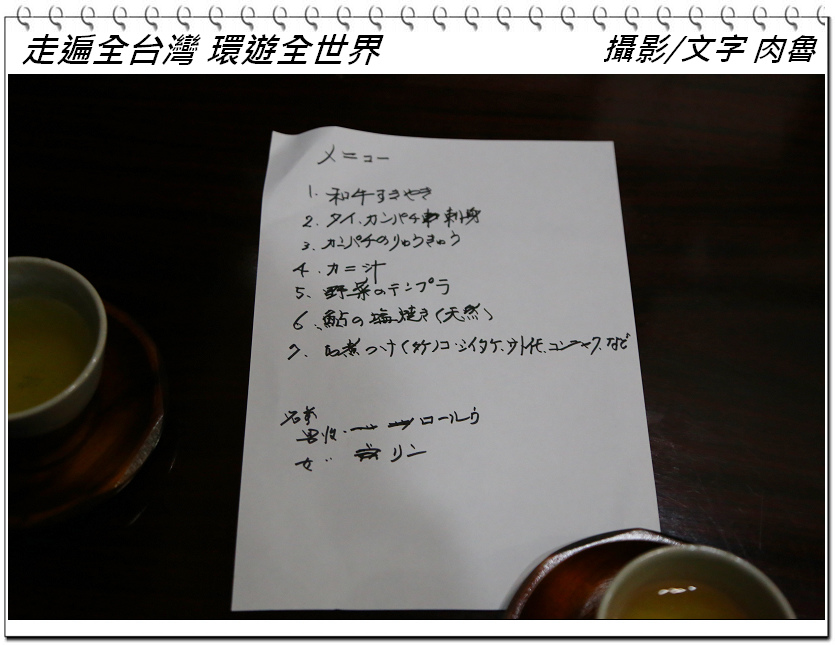 走遍全台灣 環遊全世界
攝影/文字 肉魯
メニュー
1. 和牛すきやき
2. タイ、カンパチ 刺身
3. カンパチのりゅうきゅう
4. カニ汁
5. 野菜のテンプラ
6. 鮎の塩焼き(天然)
7. 煮つけ(タケノコ・シイタケ、サトイモ、コンニャク、など
名前
男性 ロールウ
女 リン